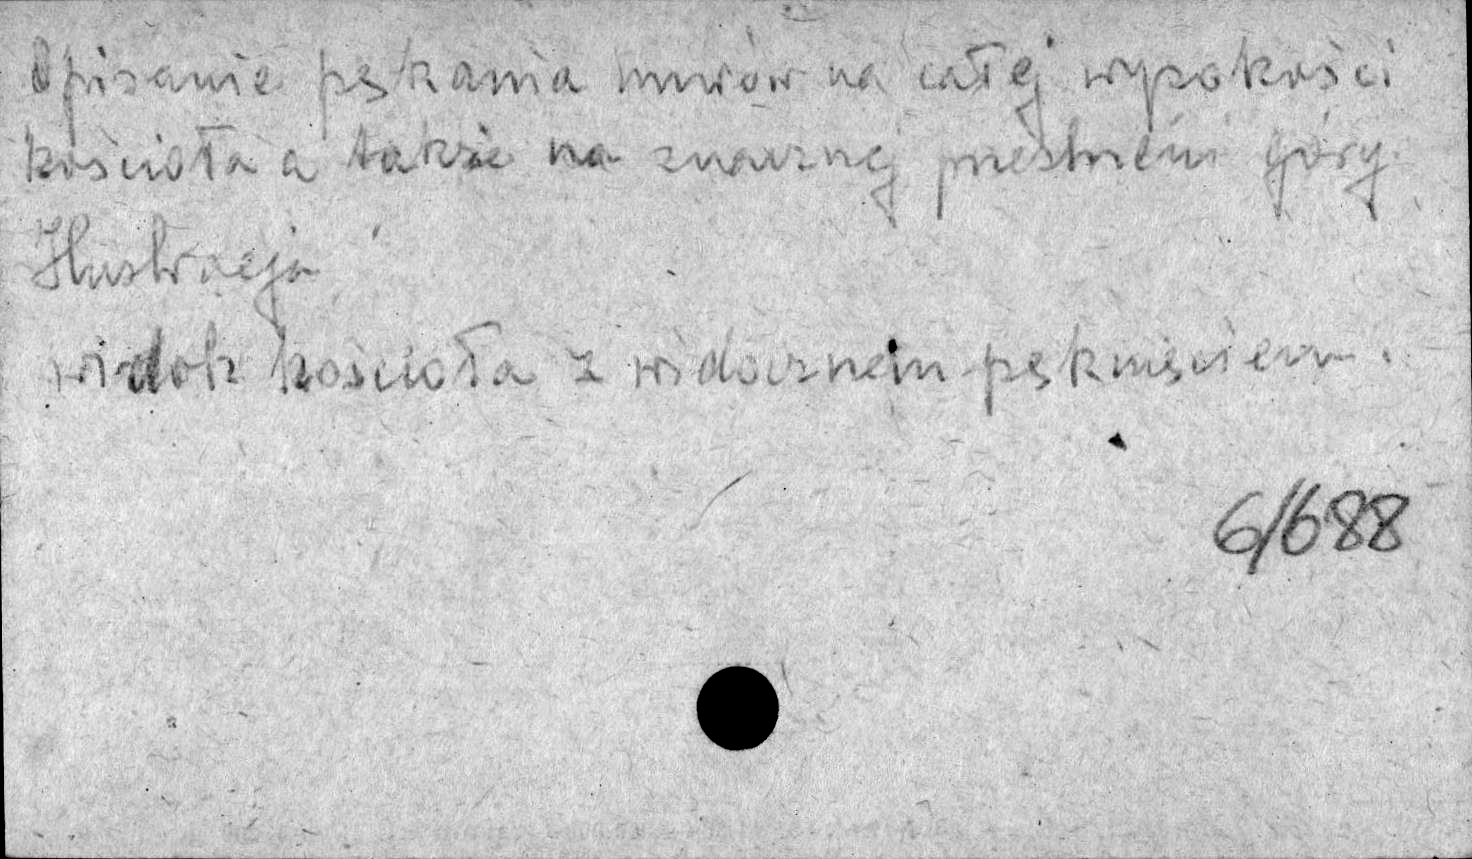 Opisanie pękania murów na całej wysokości
kościoła a także na znacznej przestrzeni góry.
Ilustracja
widok kościoła z widocznem pęknięciem.
6/688